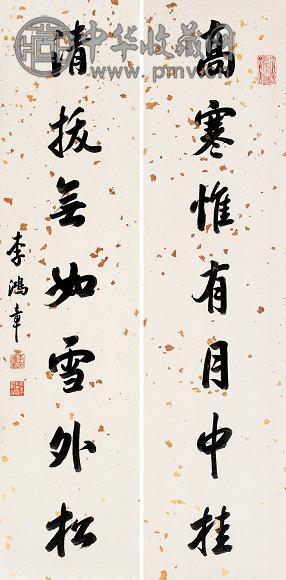 高寒惟有月中桂
清拔無如雪外松
李鴻章
中华收藏网
www.pmv.cn